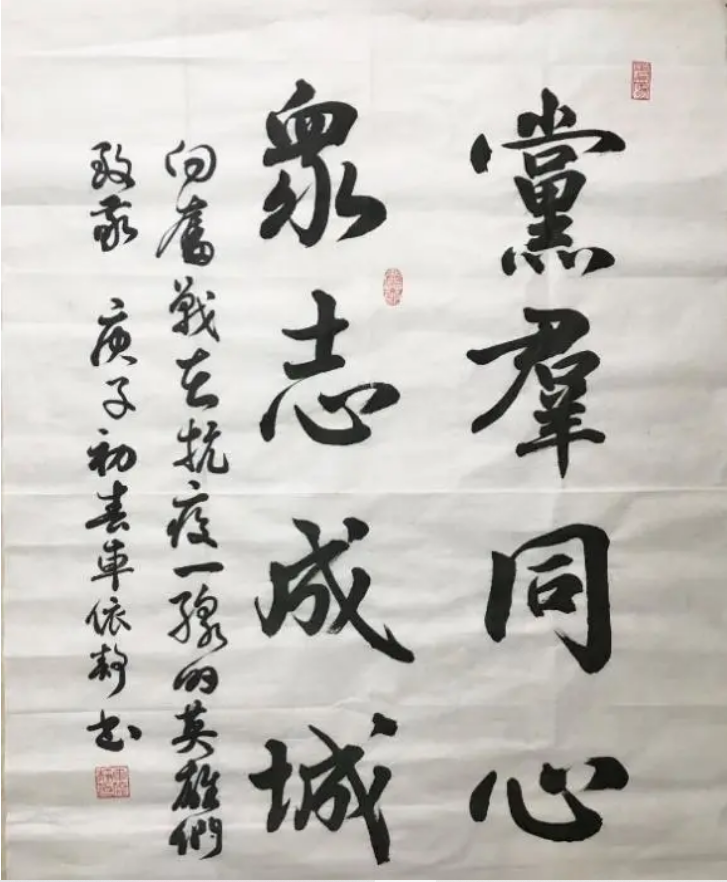 黨羣同心
眾志成城
向奮戰在抗疫一線的英雄們
致敬 庚子初春車依靜书